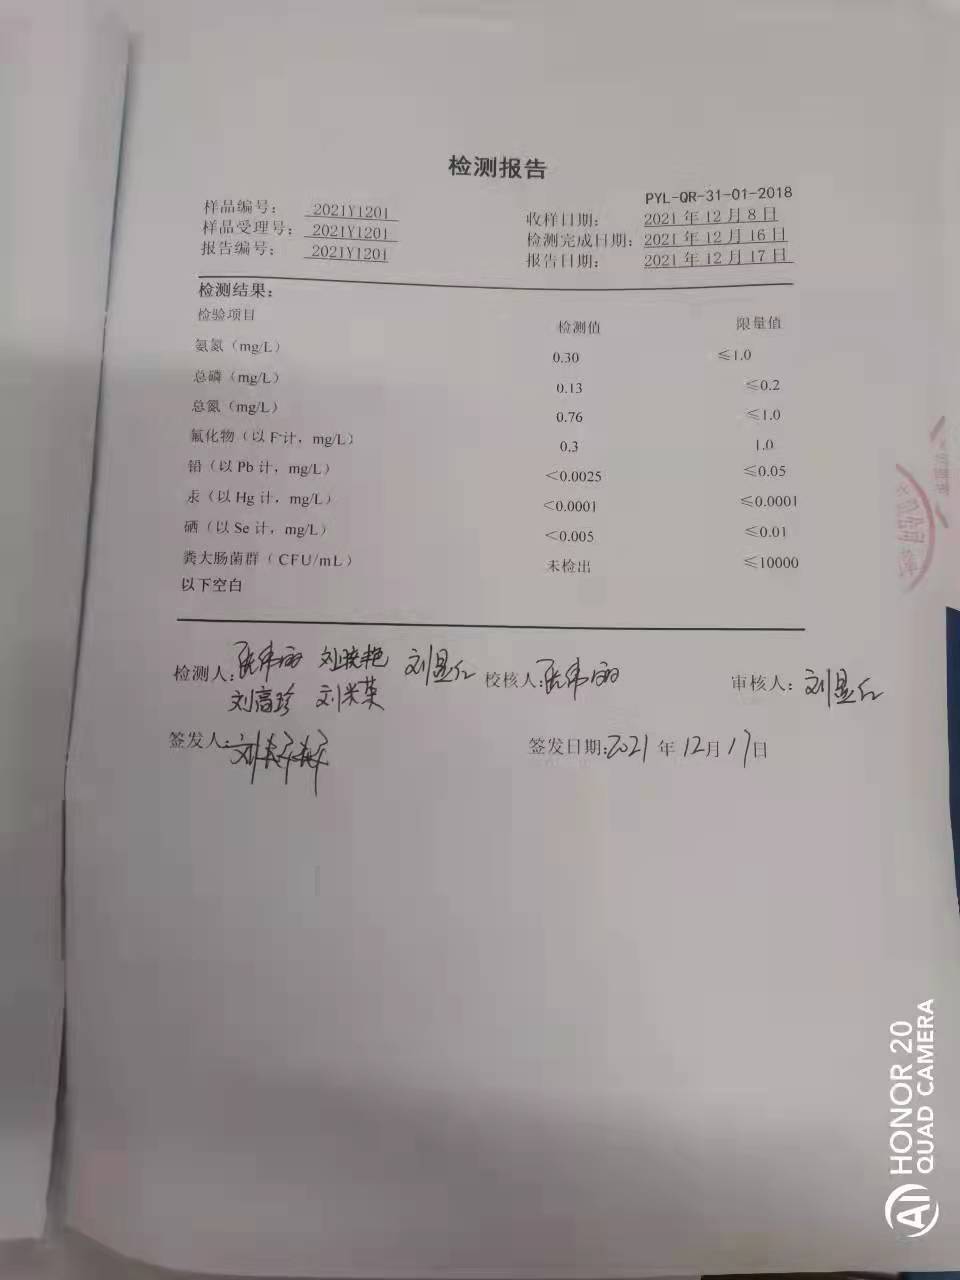 检测报告
PYL-QR-31-01-2018
样品编号： 2021Y1201 收样日期： 2021 年 12 月 8 日
样品受理号： 2021Y1201 检测完成日期： 2021 年 12 月 16 日
报告编号： 2021Y1201 报告日期： 2021 年 12 月 17 日
检测结果：
检验项目 检测值 限量值
氨氮（mg/L） 0.30 ≤1.0
总磷（mg/L） 0.13 ≤0.2
总氮（mg/L） 0.76 ≤1.0
氟化物（以 F-计，mg/L） 0.3 1.0
铅（以 Pb 计，mg/L） <0.0025 ≤0.05
汞（以 Hg 计，mg/L） <0.0001 ≤0.0001
硒（以 Se 计，mg/L） <0.005 ≤0.01
粪大肠菌群（ CFU/mL） 未检出 ≤10000
以下空白
检测人： 张伟丽 刘 刘显仁 校核人：张伟丽 审核人：刘显仁
刘高珍 刘米荣
签发人： 签发日期：2021 年 12月 17日
HONOR 20
QUAD CAMERA
AI